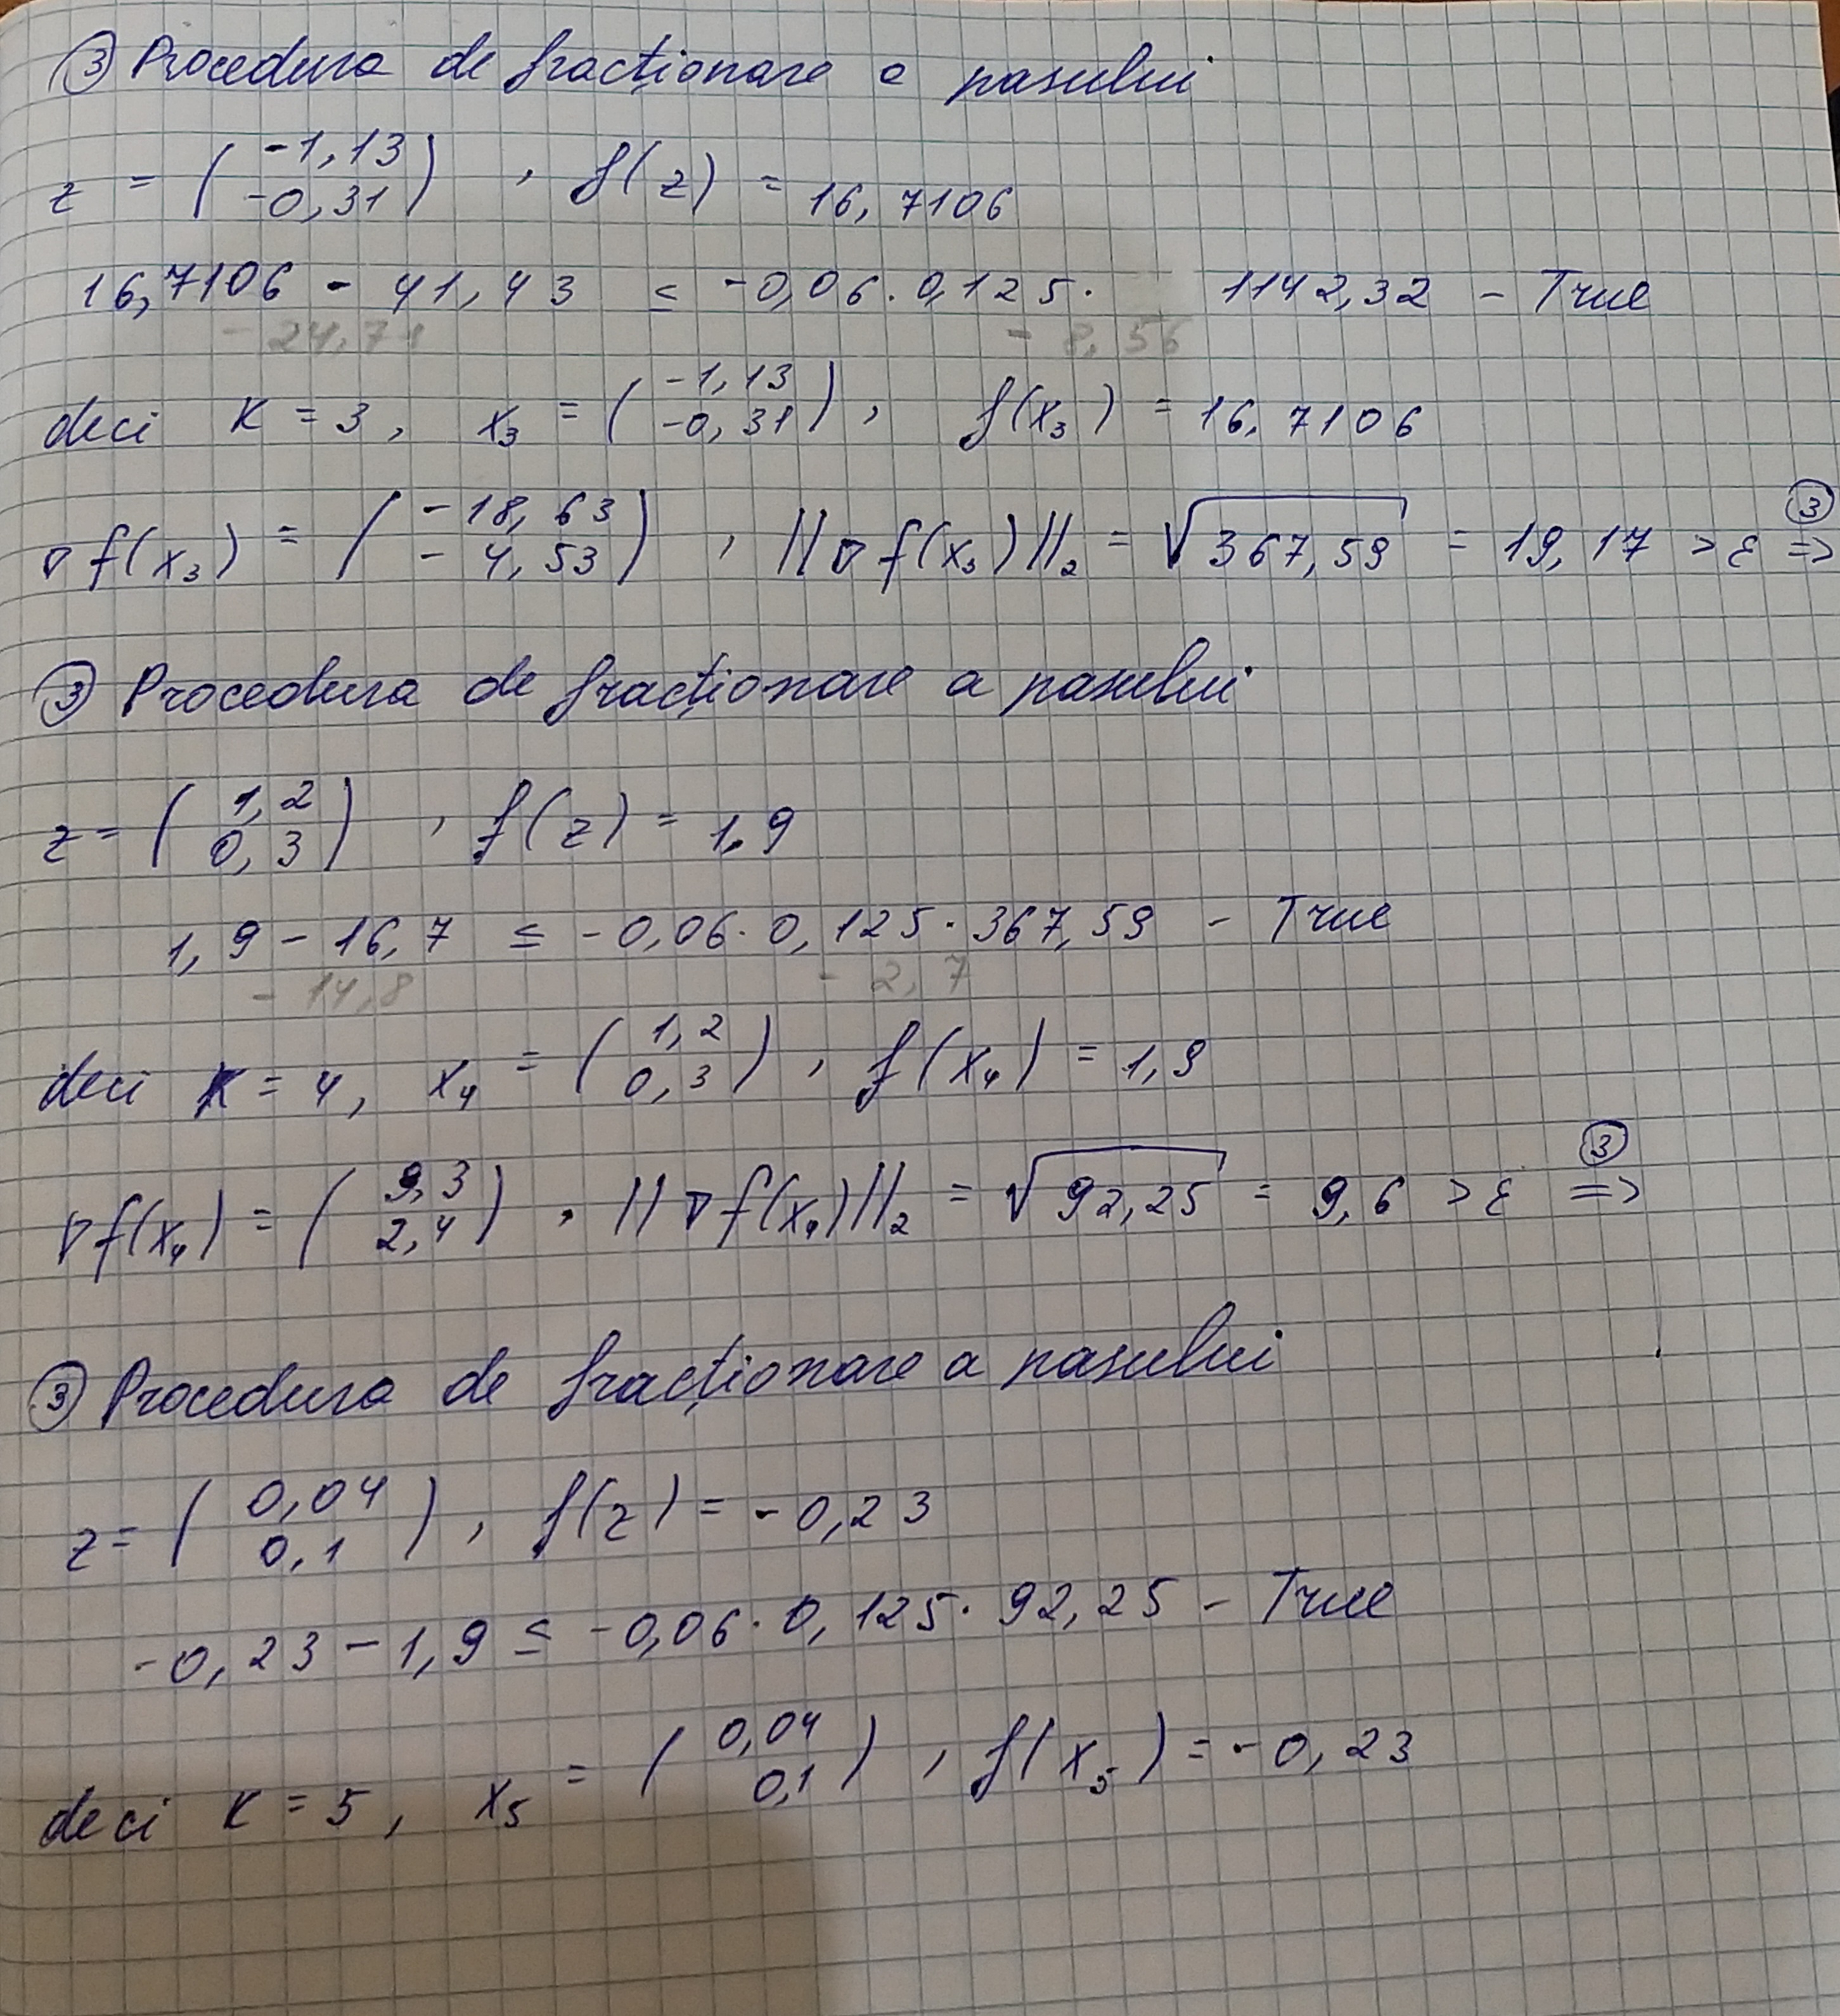 ③ Procedura de fracționare a pasului
z = (-1,13 -0,31) , f(z) = 16,7106
16,7106 - 41,43 ≤ -0,06·0,125· 1142,32 - True
- 24,71 - 8,56
deci K = 3, x₃ = (-1,13 -0,31), f(x₃) = 16,7106
∇f(x₃) = (-18,63 -4,53) , ||∇f(x₃)||₂ = √367,59 = 19,17 >ε ③=>
③ Procedura de fracționare a pasului
z = (1,2 0,3) , f(z) = 1,9
1,9 - 16,7 ≤ -0,06·0,125·367,59 - True
- 14,8 - 2,7
deci K = 4, x₄ = (1,2 0,3) , f(x₄) = 1,9
∇f(x₄) = (9,3 2,4) , ||∇f(x₄)||₂ = √92,25 = 9,6 >ε ③=>
③ Procedura de fracționare a pasului
z = (0,04 0,1) , f(z) = -0,23
-0,23 - 1,9 ≤ -0,06·0,125·92,25 - True
deci K = 5, x₅ = (0,04 0,1) , f(x₅) = -0,23